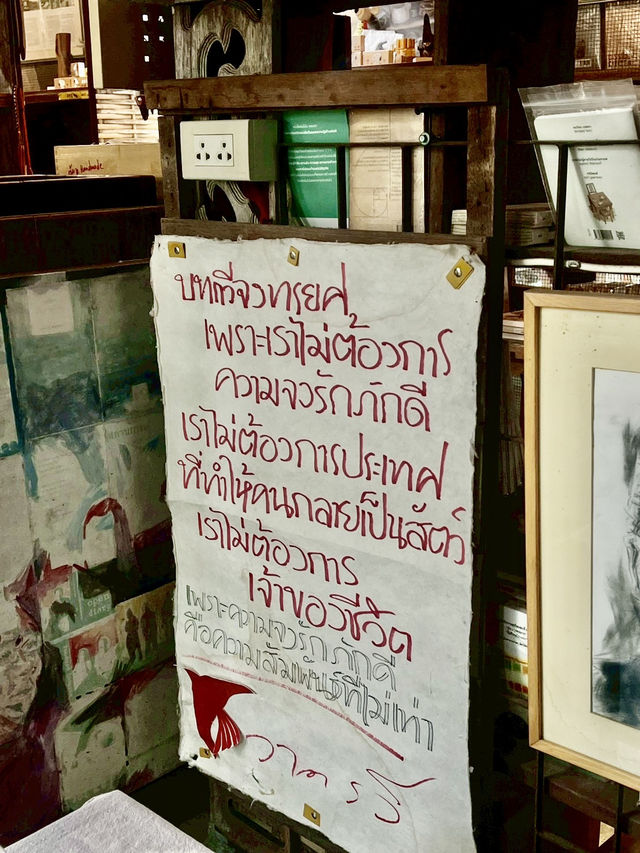 บทที่จงทรยศ
เพราะเราไม่ต้องการ
ความจงรักภักดี
เราไม่ต้องการประเทศ
ที่ทำให้คนกลายเป็นสัตว์
เราไม่ต้องการ
เจ้าของชีวิต
เพราะความจงรักภักดี
คือความสัมพันธ์ที่ไม่เท่า